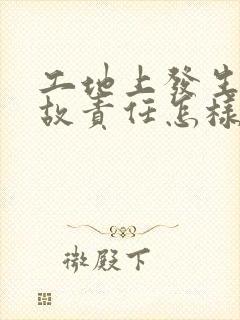 工地上發生
故責任怎樣
微殿下